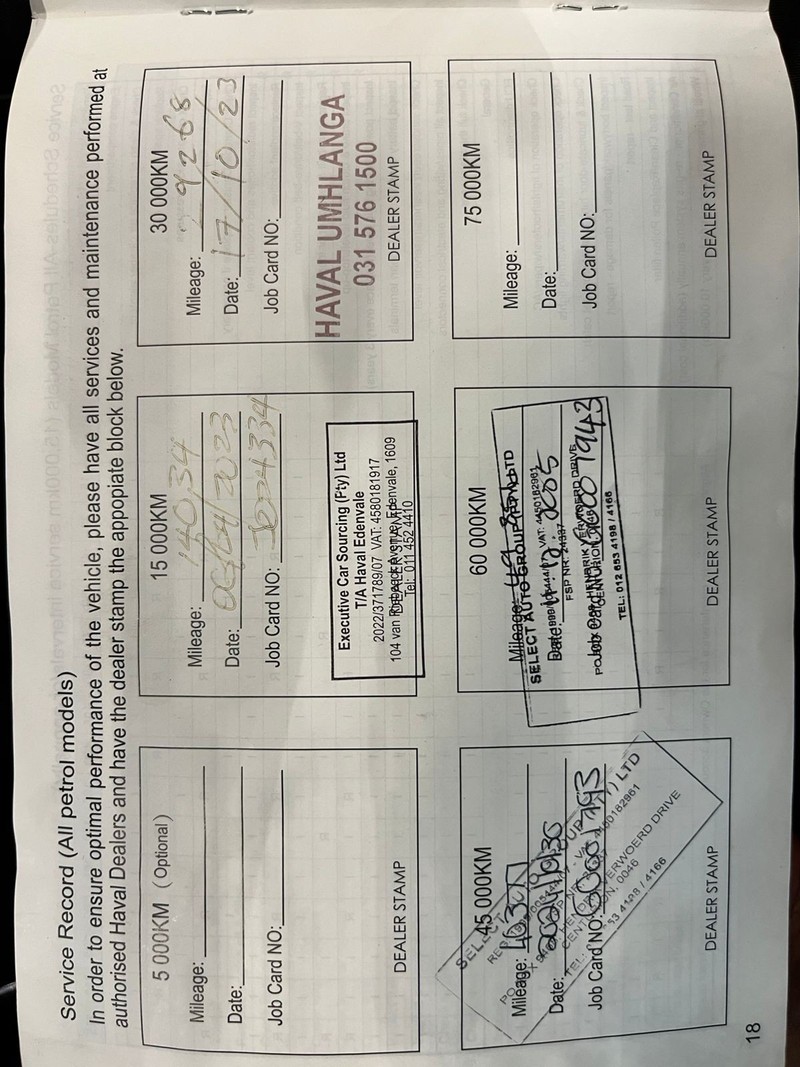 Service Record (All petrol models)
In order to ensure optimal performance of the vehicle, please have all services and maintenance performed at
authorised Haval Dealers and have the dealer stamp the appopiate block below.
5 000KM (Optional)
Mileage:
Date:
Job Card NO:
DEALER STAMP
15 000KM
Mileage: 14034
Date: 06/04/2023
Job Card NO:
Executive Car Sourcing (Pty) Ltd
T/A Haval Edenvale
2022/371789/07 VAT: 4580181917
104 van Riebeeck Avenue, Edenvale, 1609
DEALER STAMP
Tel: 011 452 4410
30 000KM
Mileage: 29268
Date: 17/10/23
Job Card NO:
HAVAL UMHLANGA
031 576 1500
DEALER STAMP
45 000KM
Mileage:
Date:
Job Card NO:
SELECT
HENDRIK VERWOERD DRIVE
CENTURION, 0046
TEL: 4198 / 4166
DEALER STAMP
60 000KM
Mileage:
SELECT AUTO GROUP (PTY) LTD
Date:
VAT: 4450182961
FSP NR:
Job Card
HENDRIK VERWOERD DRIVE
CENTURION
TEL: 012 653 4198 / 4166
DEALER STAMP
75 000KM
Mileage:
Date:
Job Card NO:
DEALER STAMP
18